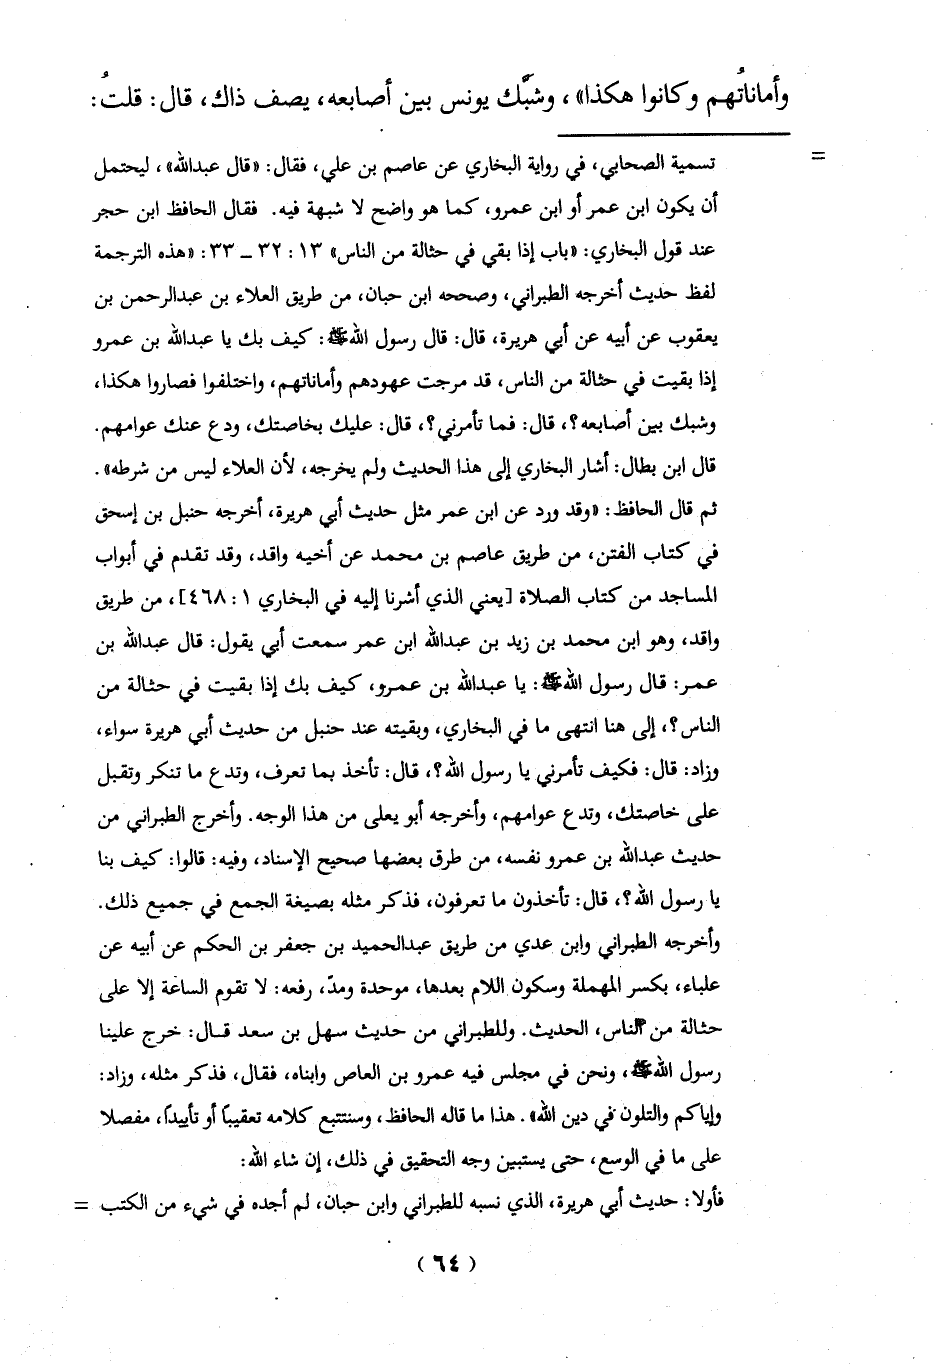 وأماناتُهم وكانوا هكذا»، وشبَّك يونس بين أصابعه، يصف ذاك، قال: قلتُ:
= تسمية الصحابي، في رواية البخاري عن عاصم بن علي، فقال: «قال عبدالله»، ليحتمل
أن يكون ابن عمر أو ابن عمرو، كما هو واضح لا شبهة فيه. فقال الحافظ ابن حجر
عند قول البخاري: «باب إذا بقي في حثالة من الناس» ١٣: ٣٢ ـ ٣٣: «هذه الترجمة
لفظ حديث أخرجه الطبراني، وصححه ابن حبان، من طريق العلاء بن عبدالرحمن بن
يعقوب عن أبيه عن أبي هريرة، قال: قال رسول اللهﷺ: كيف بك يا عبدالله بن عمرو
إذا بقيت في حثالة من الناس، قد مرجت عهودهم وأماناتهم، واختلفوا فصاروا هكذا،
وشبك بين أصابعه؟، قال: فما تأمرني؟، قال: عليك بخاصتك، ودع عنك عوامهم.
قال ابن بطال: أشار البخاري إلى هذا الحديث ولم يخرجه، لأن العلاء ليس من شرطه».
ثم قال الحافظ: «وقد ورد عن ابن عمر مثل حديث أبي هريرة، أخرجه حنبل بن إسحق
في كتاب الفتن، من طريق عاصم بن محمد عن أخيه واقد، وقد تقدم في أبواب
المساجد من كتاب الصلاة [يعني الذي أشرنا إليه في البخاري ١: ٤٦٨]، من طريق
واقد، وهو ابن محمد بن زيد بن عبدالله ابن عمر سمعت أبي يقول: قال عبدالله بن
عمر: قال رسول اللهﷺ: يا عبدالله بن عمرو، كيف بك إذا بقيت في حثالة من
الناس؟، إلى هنا انتهى ما في البخاري، وبقيته عند حنبل من حديث أبي هريرة سواء،
وزاد: قال: فكيف تأمرني يا رسول الله؟، قال: تأخذ بما تعرف، وتدع ما تنكر وتقبل
على خاصتك، وتدع عوامهم، وأخرجه أبو يعلى من هذا الوجه. وأخرج الطبراني من
حديث عبدالله بن عمرو نفسه، من طرق بعضها صحيح الإسناد، وفيه: قالوا: كيف بنا
يا رسول الله؟، قال: تأخذون ما تعرفون، فذكر مثله بصيغة الجمع في جميع ذلك.
وأخرجه الطبراني وابن عدي من طريق عبدالحميد بن جعفر بن الحكم عن أبيه عن
علباء، بكسر المهملة وسكون اللام بعدها، موحدة ومدّ، رفعه: لا تقوم الساعة إلا على
حثالة من الناس، الحديث. وللطبراني من حديث سهل بن سعد قال: خرج علينا
رسول اللهﷺ، ونحن في مجلس فيه عمرو بن العاص وابناه، فقال، فذكر مثله، وزاد:
وإياكم والتلون في دين الله». هذا ما قاله الحافظ، وسنتتبع كلامه تعقيباً أو تأييداً، مفصلا
على ما في الوسع، حتى يستبين وجه التحقيق في ذلك، إن شاء الله:
فأولا: حديث أبي هريرة، الذي نسبه للطبراني وابن حبان، لم أجده في شيء من الكتب =
(٦٤)